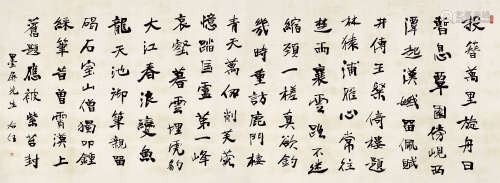 投簪萬里放舟日
暫息覃園傍峴西
潭起漢娥留佩賦
井傳王粲倚樓題
林猿浦雁心常往
楚雨襄雲跡不迷
縮頸一槎真欲釣
幾時重訪鹿門棲
青天萬仞削芙蓉
憶踏匡廬第一峰
哀壑暮雲埋虎豹
大江春浪變魚
龍天池御筆親留
碣石室山僧獨叩鐘
綵筆昔曾霄漢上
舊題應被紫苔封
墨屏先生 右任